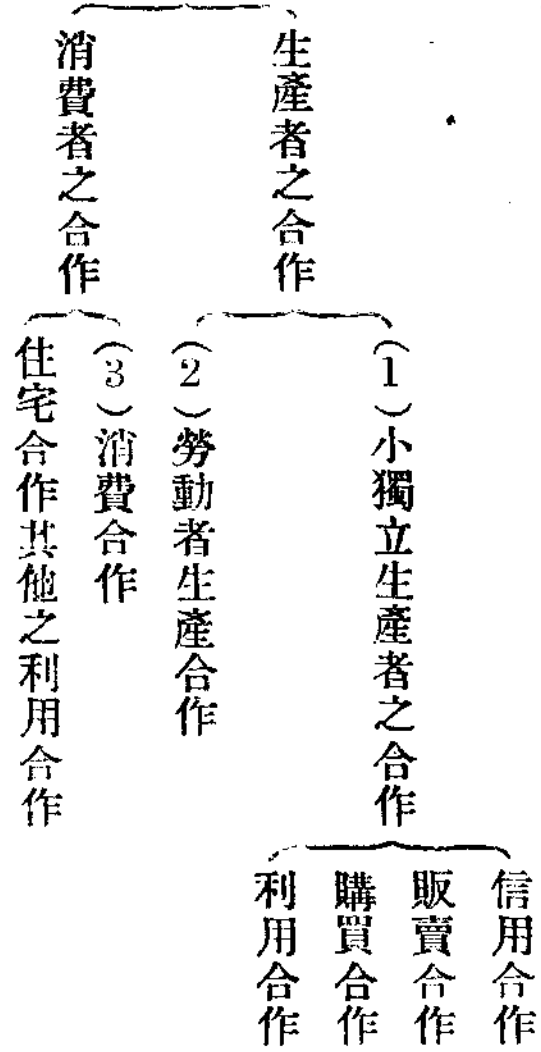 生產者之合作
(1)小獨立生產者之合作
信用合作
販賣合作
購買合作
利用合作
(2)勞動者生產合作
消費者之合作
(3)消費合作
住宅合作其他之利用合作